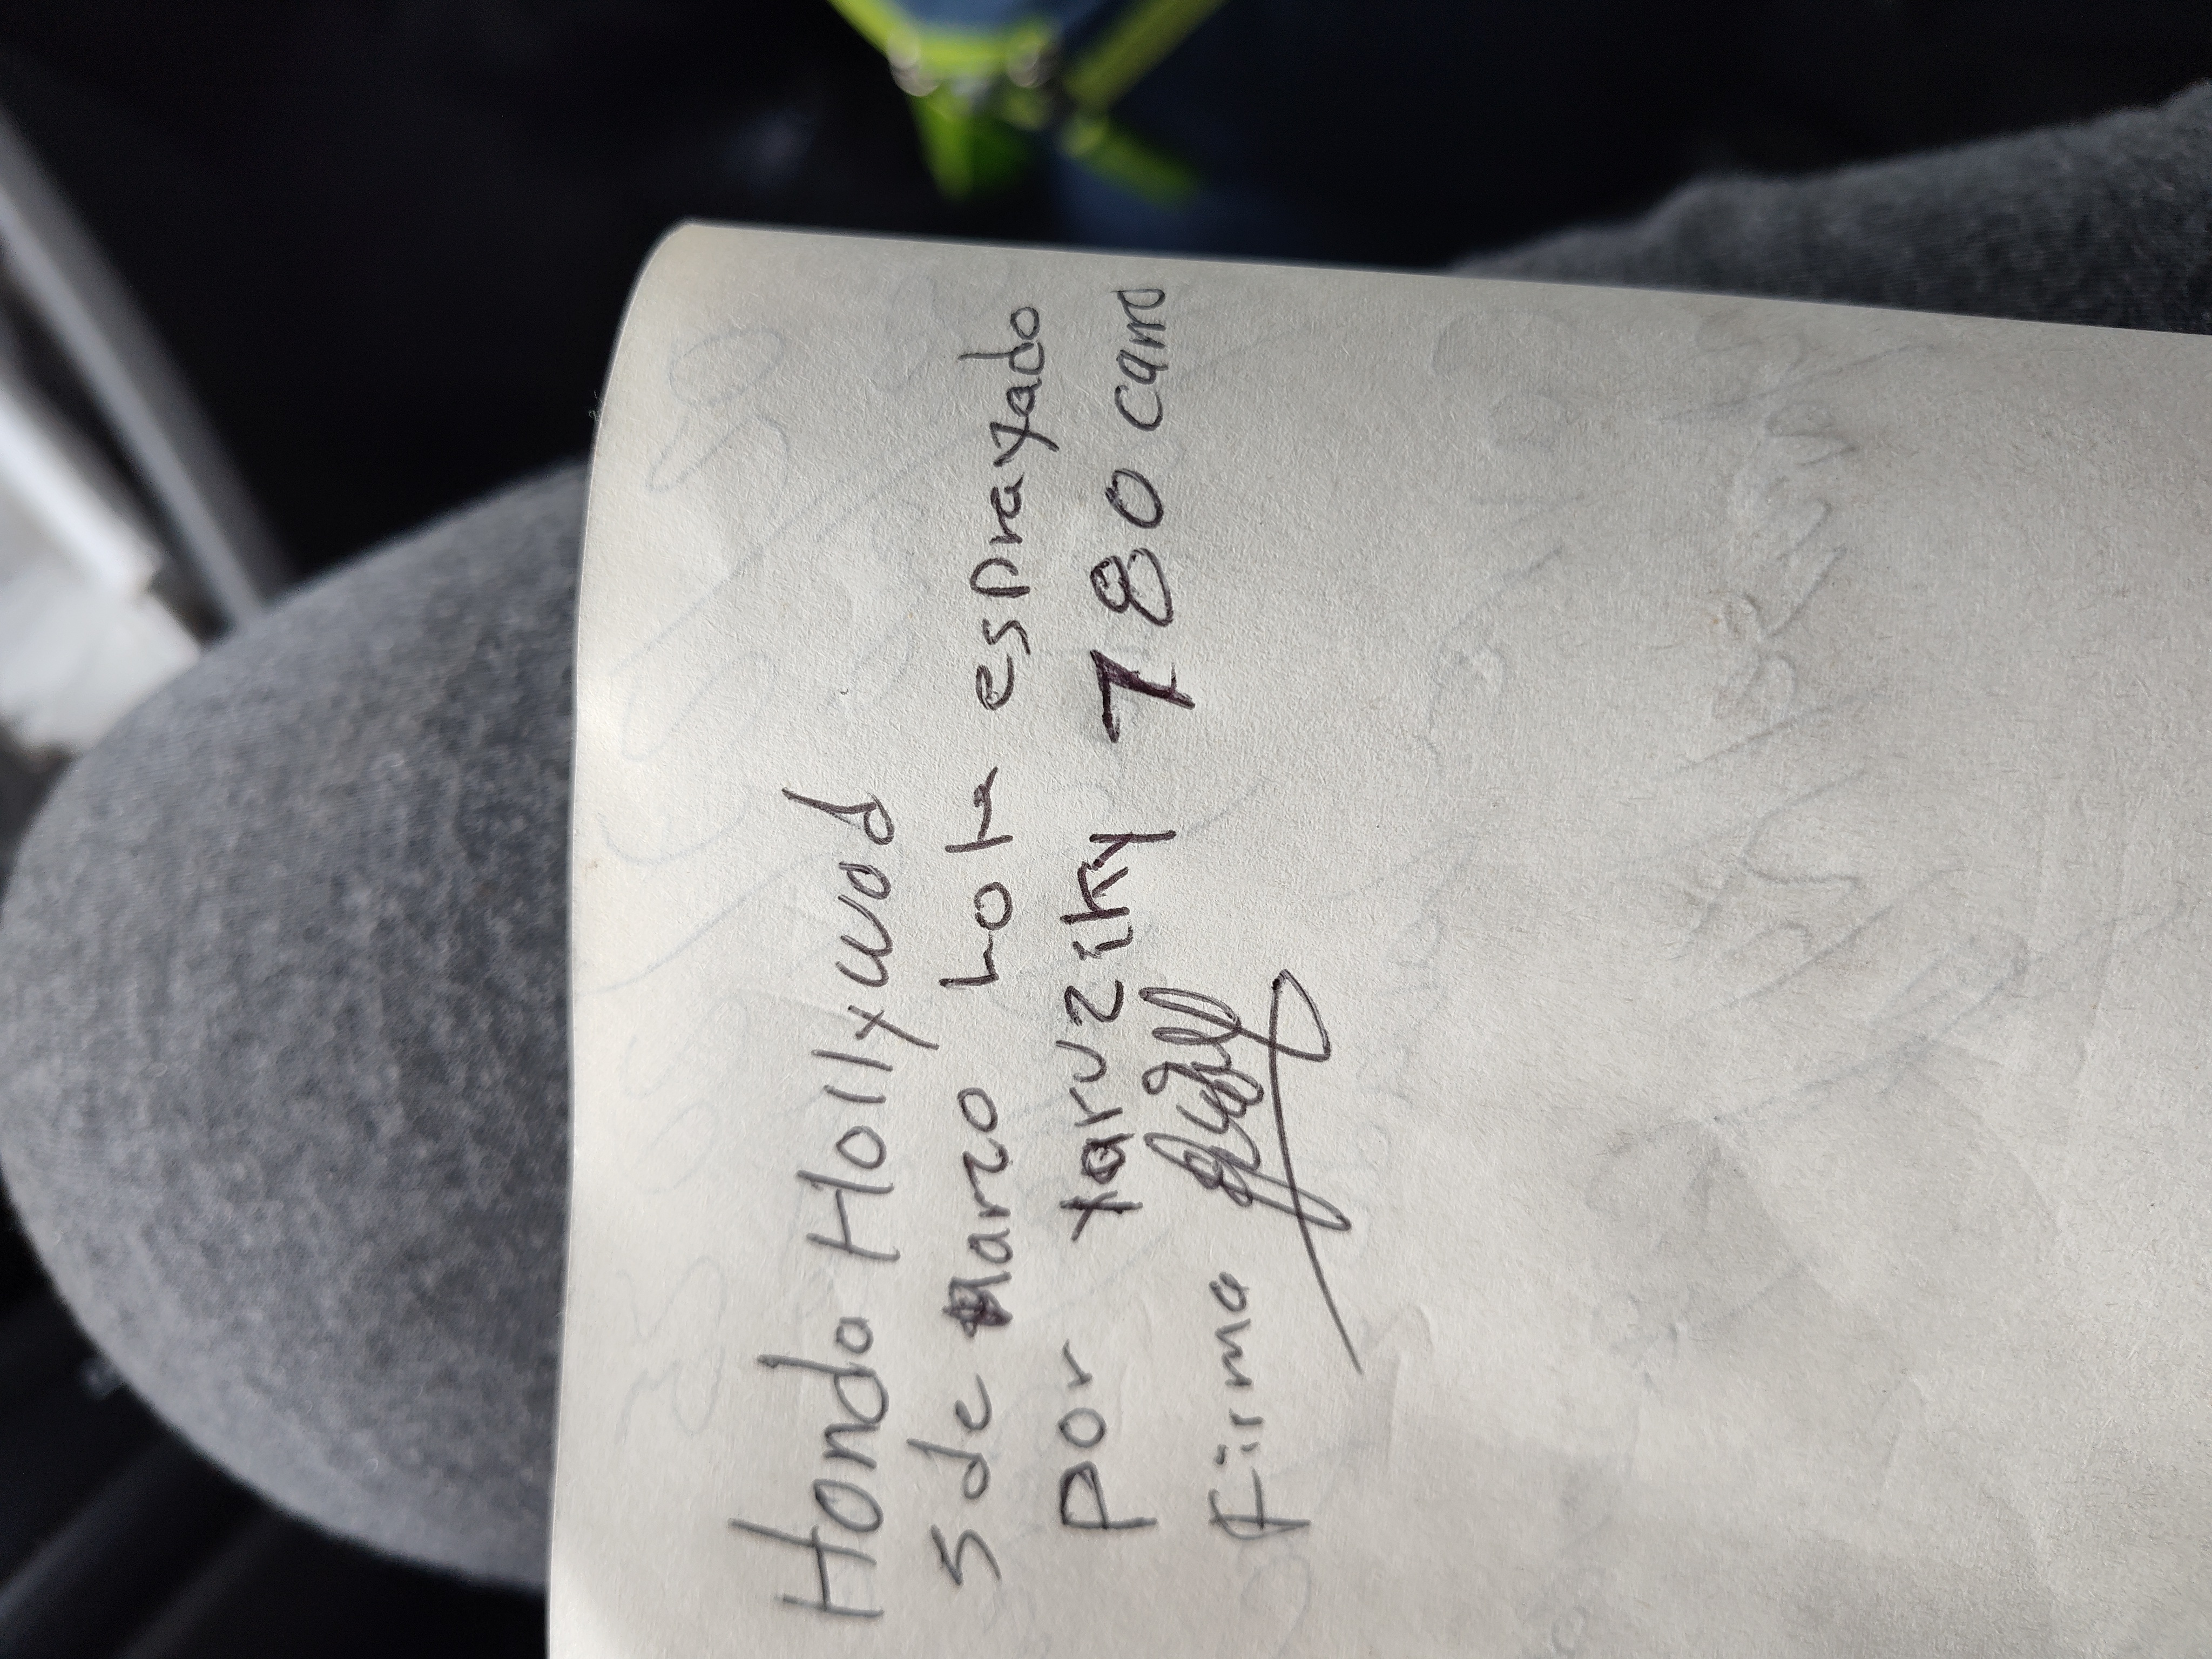 Honda Hollywod
5 de Marzo Lot esprayado
por Yaruziky 780 carro
Firma